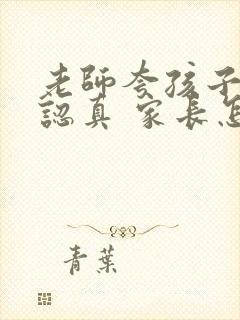 老師夸孩子
認真 家長怎
青葉